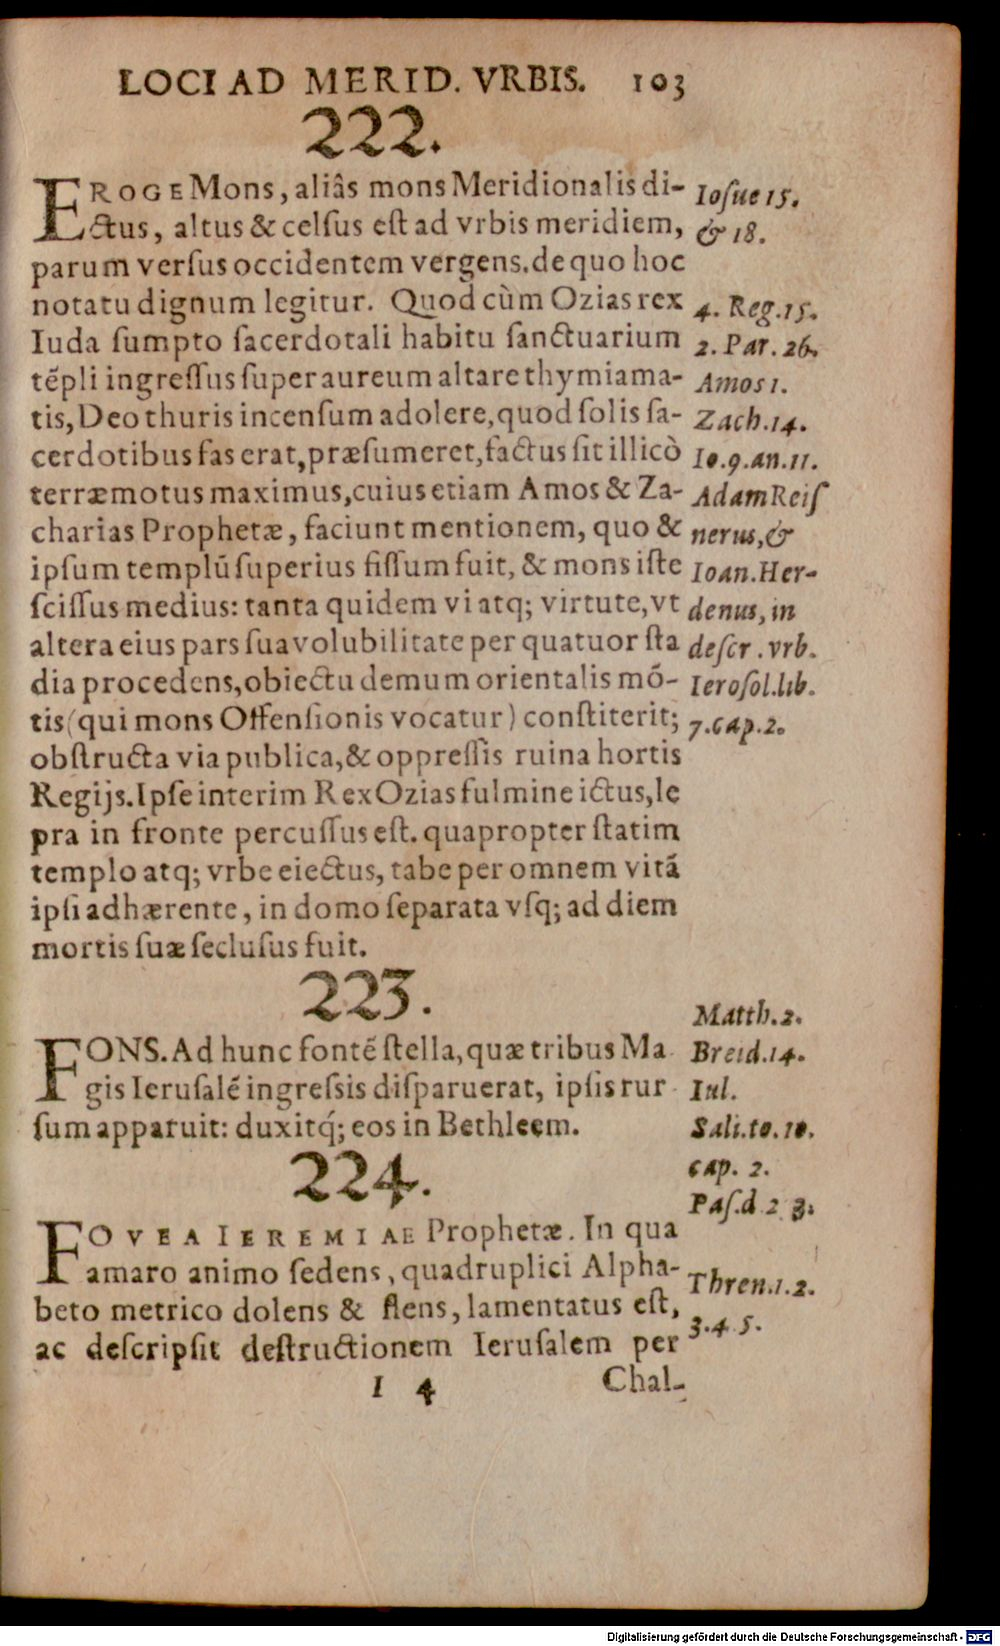 LOCI AD MERID. VRBIS. 103
222.
EROGE Mons, aliâs mons Meridionalis di-
ctus, altus & celſus eſt ad vrbis meridiem,
parum verſus occidentem vergens. de quo hoc
notatu dignum legitur. Quod cùm Ozias rex
Iuda ſumpto ſacerdotali habitu ſanctuarium
tẽpli ingreſſus ſuper aureum altare thymiama-
tis, Deo thuris incenſum adolere, quod ſolis ſa-
cerdotibus fas erat, præſumeret, factus ſit illicò
terræmotus maximus, cuius etiam Amos & Za-
charias Prophetæ, faciunt mentionem, quo &
ipſum templũ ſuperius fiſſum fuit, & mons iſte
ſciſſus medius: tanta quidem vi atq; virtute, vt
altera eius pars ſua volubilitate per quatuor ſta
dia procedens, obiectu demum orientalis mõ-
tis (qui mons Offenſionis vocatur) conſtiterit;
obſtructa via publica, & oppreſſis ruina hortis
Regijs. Ipſe interim Rex Ozias fulmine ictus, le
pra in fronte percuſſus eſt. quapropter ſtatim
templo atq; vrbe eiectus, tabe per omnem vitã
ipſi adhærente, in domo ſeparata vſq; ad diem
mortis ſuæ ſecluſus fuit.
Ioſue 15.
& 18.
4. Reg. 15.
2. Par. 26.
Amos 1.
Zach. 14.
Io. 9. an. 11.
Adam Reiſ
nerus, &
Ioan. Her-
denus, in
deſcr. vrb.
Ieroſol. lib.
7. cap. 2.
223.
FONS. Ad hunc fontẽ ſtella, quæ tribus Ma
gis Ieruſalẽ ingreſsis diſparuerat, ipſis rur
ſum apparuit: duxitq́; eos in Bethleem.
Matth. 2.
Breid. 14.
Iul.
Sali. to. 10.
cap. 2.
Paſ. d 2 3.
224.
FOVEA IEREMIAE Prophetæ. In qua
amaro animo ſedens, quadruplici Alpha-
beto metrico dolens & flens, lamentatus eſt,
ac deſcripſit deſtructionem Ieruſalem per
Thren. 1. 2.
3. 4 5.
I 4 Chal-
Digitalisierung gefördert durch die Deutsche Forschungsgemeinschaft - DFG